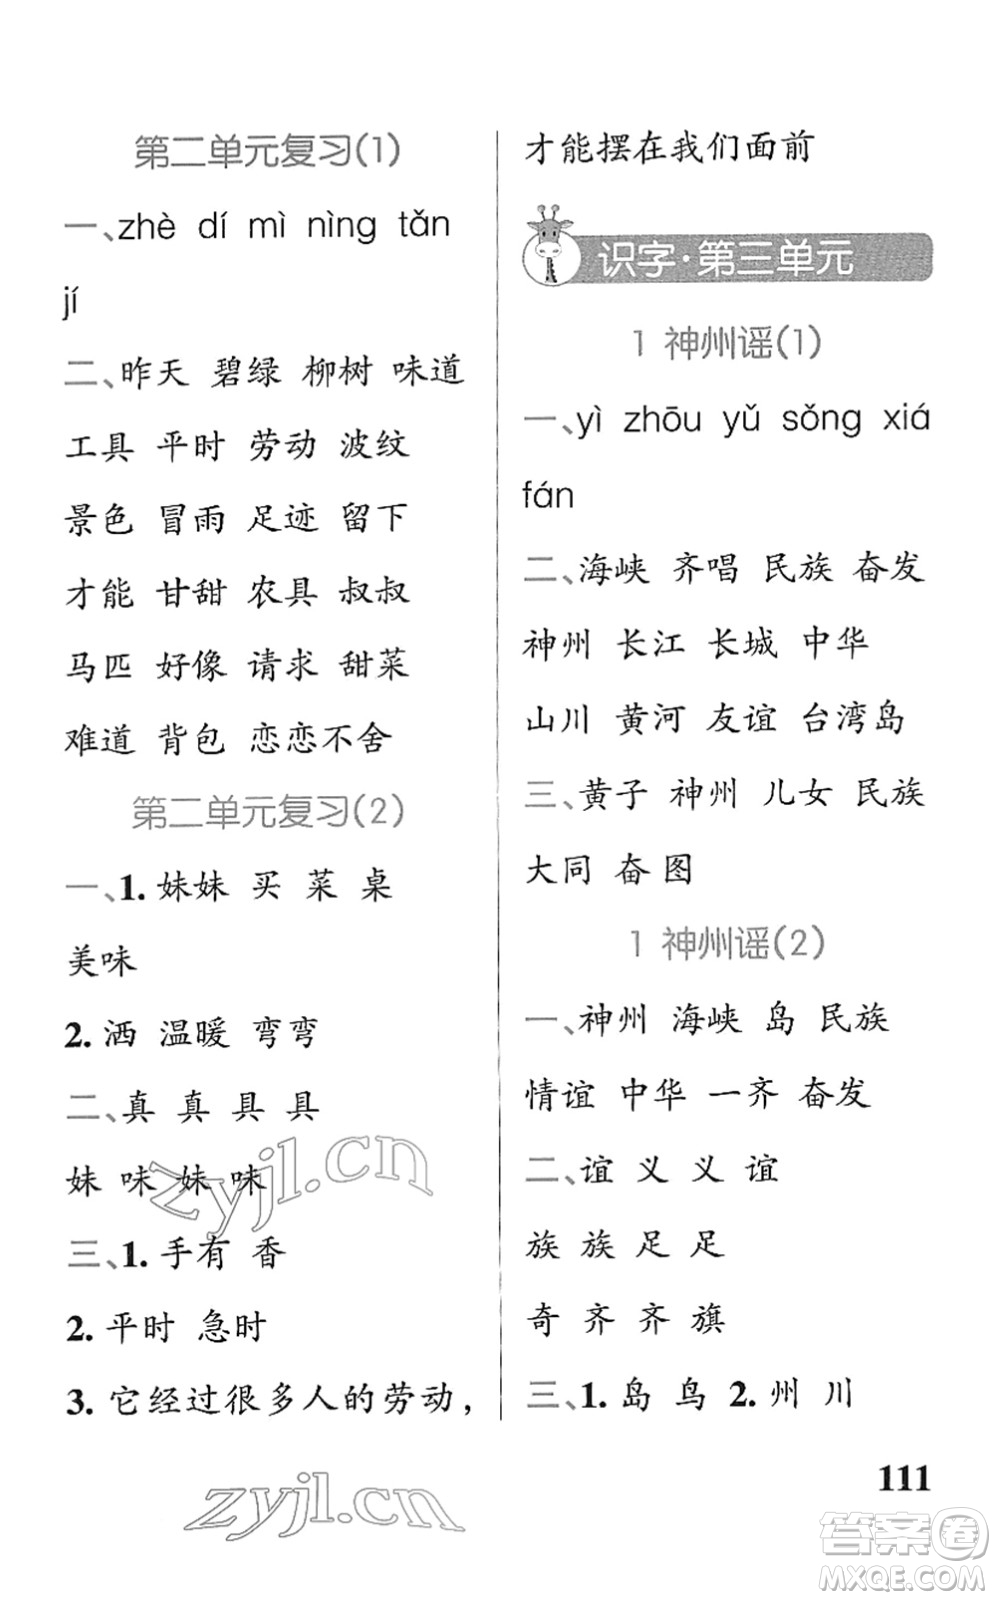 第二单元复习(1)
一、zhè dí mì nìng tǎn
jí
二、昨天 碧绿 柳树 味道
工具 平时 劳动 波纹
景色 冒雨 足迹 留下
才能 甘甜 农具 叔叔
马匹 好像 请求 甜菜
难道 背包 恋恋不舍
第二单元复习(2)
一、1. 妹妹 买 菜 桌
美味
2. 洒 温暖 弯弯
二、真 真 具 具
妹 味 妹 味
三、1. 手有 香
2. 平时 急时
3. 它经过很多人的劳动，
才能摆在我们面前
识字·第三单元
1 神州谣(1)
一、yì zhōu yǔ sǒng xiá
fán
二、海峡 齐唱 民族 奋发
神州 长江 长城 中华
山川 黄河 友谊 台湾岛
三、黄子 神州 儿女 民族
大同 奋 图
1 神州谣(2)
一、神州 海峡 岛 民族
情谊 中华 一齐 奋发
二、谊 义 义 谊
族 族 足 足
奇 齐 齐 旗
三、1. 岛 鸟 2. 州 川
111
zyjl.cn
zyjl.cn
答案圈
MXQE.COM